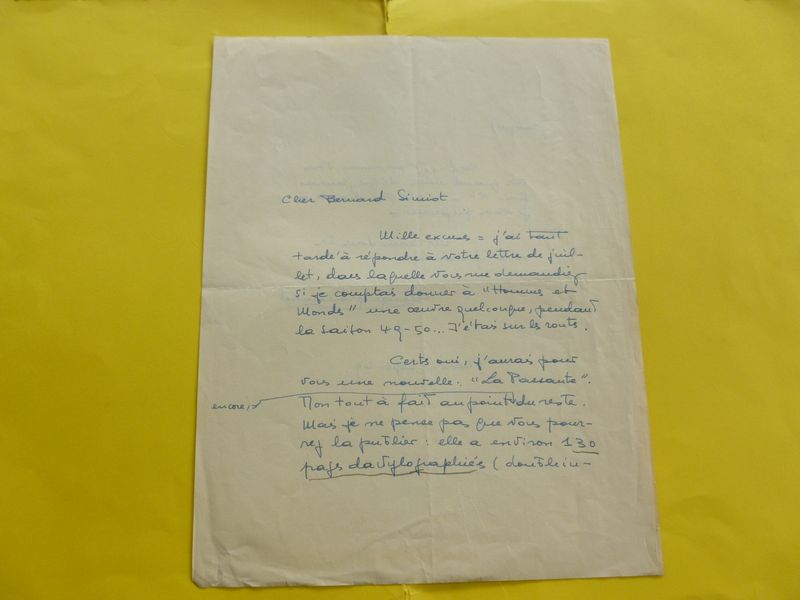 Cher Bernard Simiot
Mille excuses = j'ai tant
tardé à répondre à votre lettre de juil-
let, dans laquelle vous me demandiez
si je comptais donner à "Hommes et
Mondes" une œuvre quelconque, pendant
la saison 49-50... J'étais sur les routes.
Certes oui, j'aurais pour
vous une nouvelle : "La Passante".
encore,
Non tout à fait au point du reste.
Mais je ne pense pas que vous pour-
rez la publier : elle a environ 130
pages dactylographiés (double in-